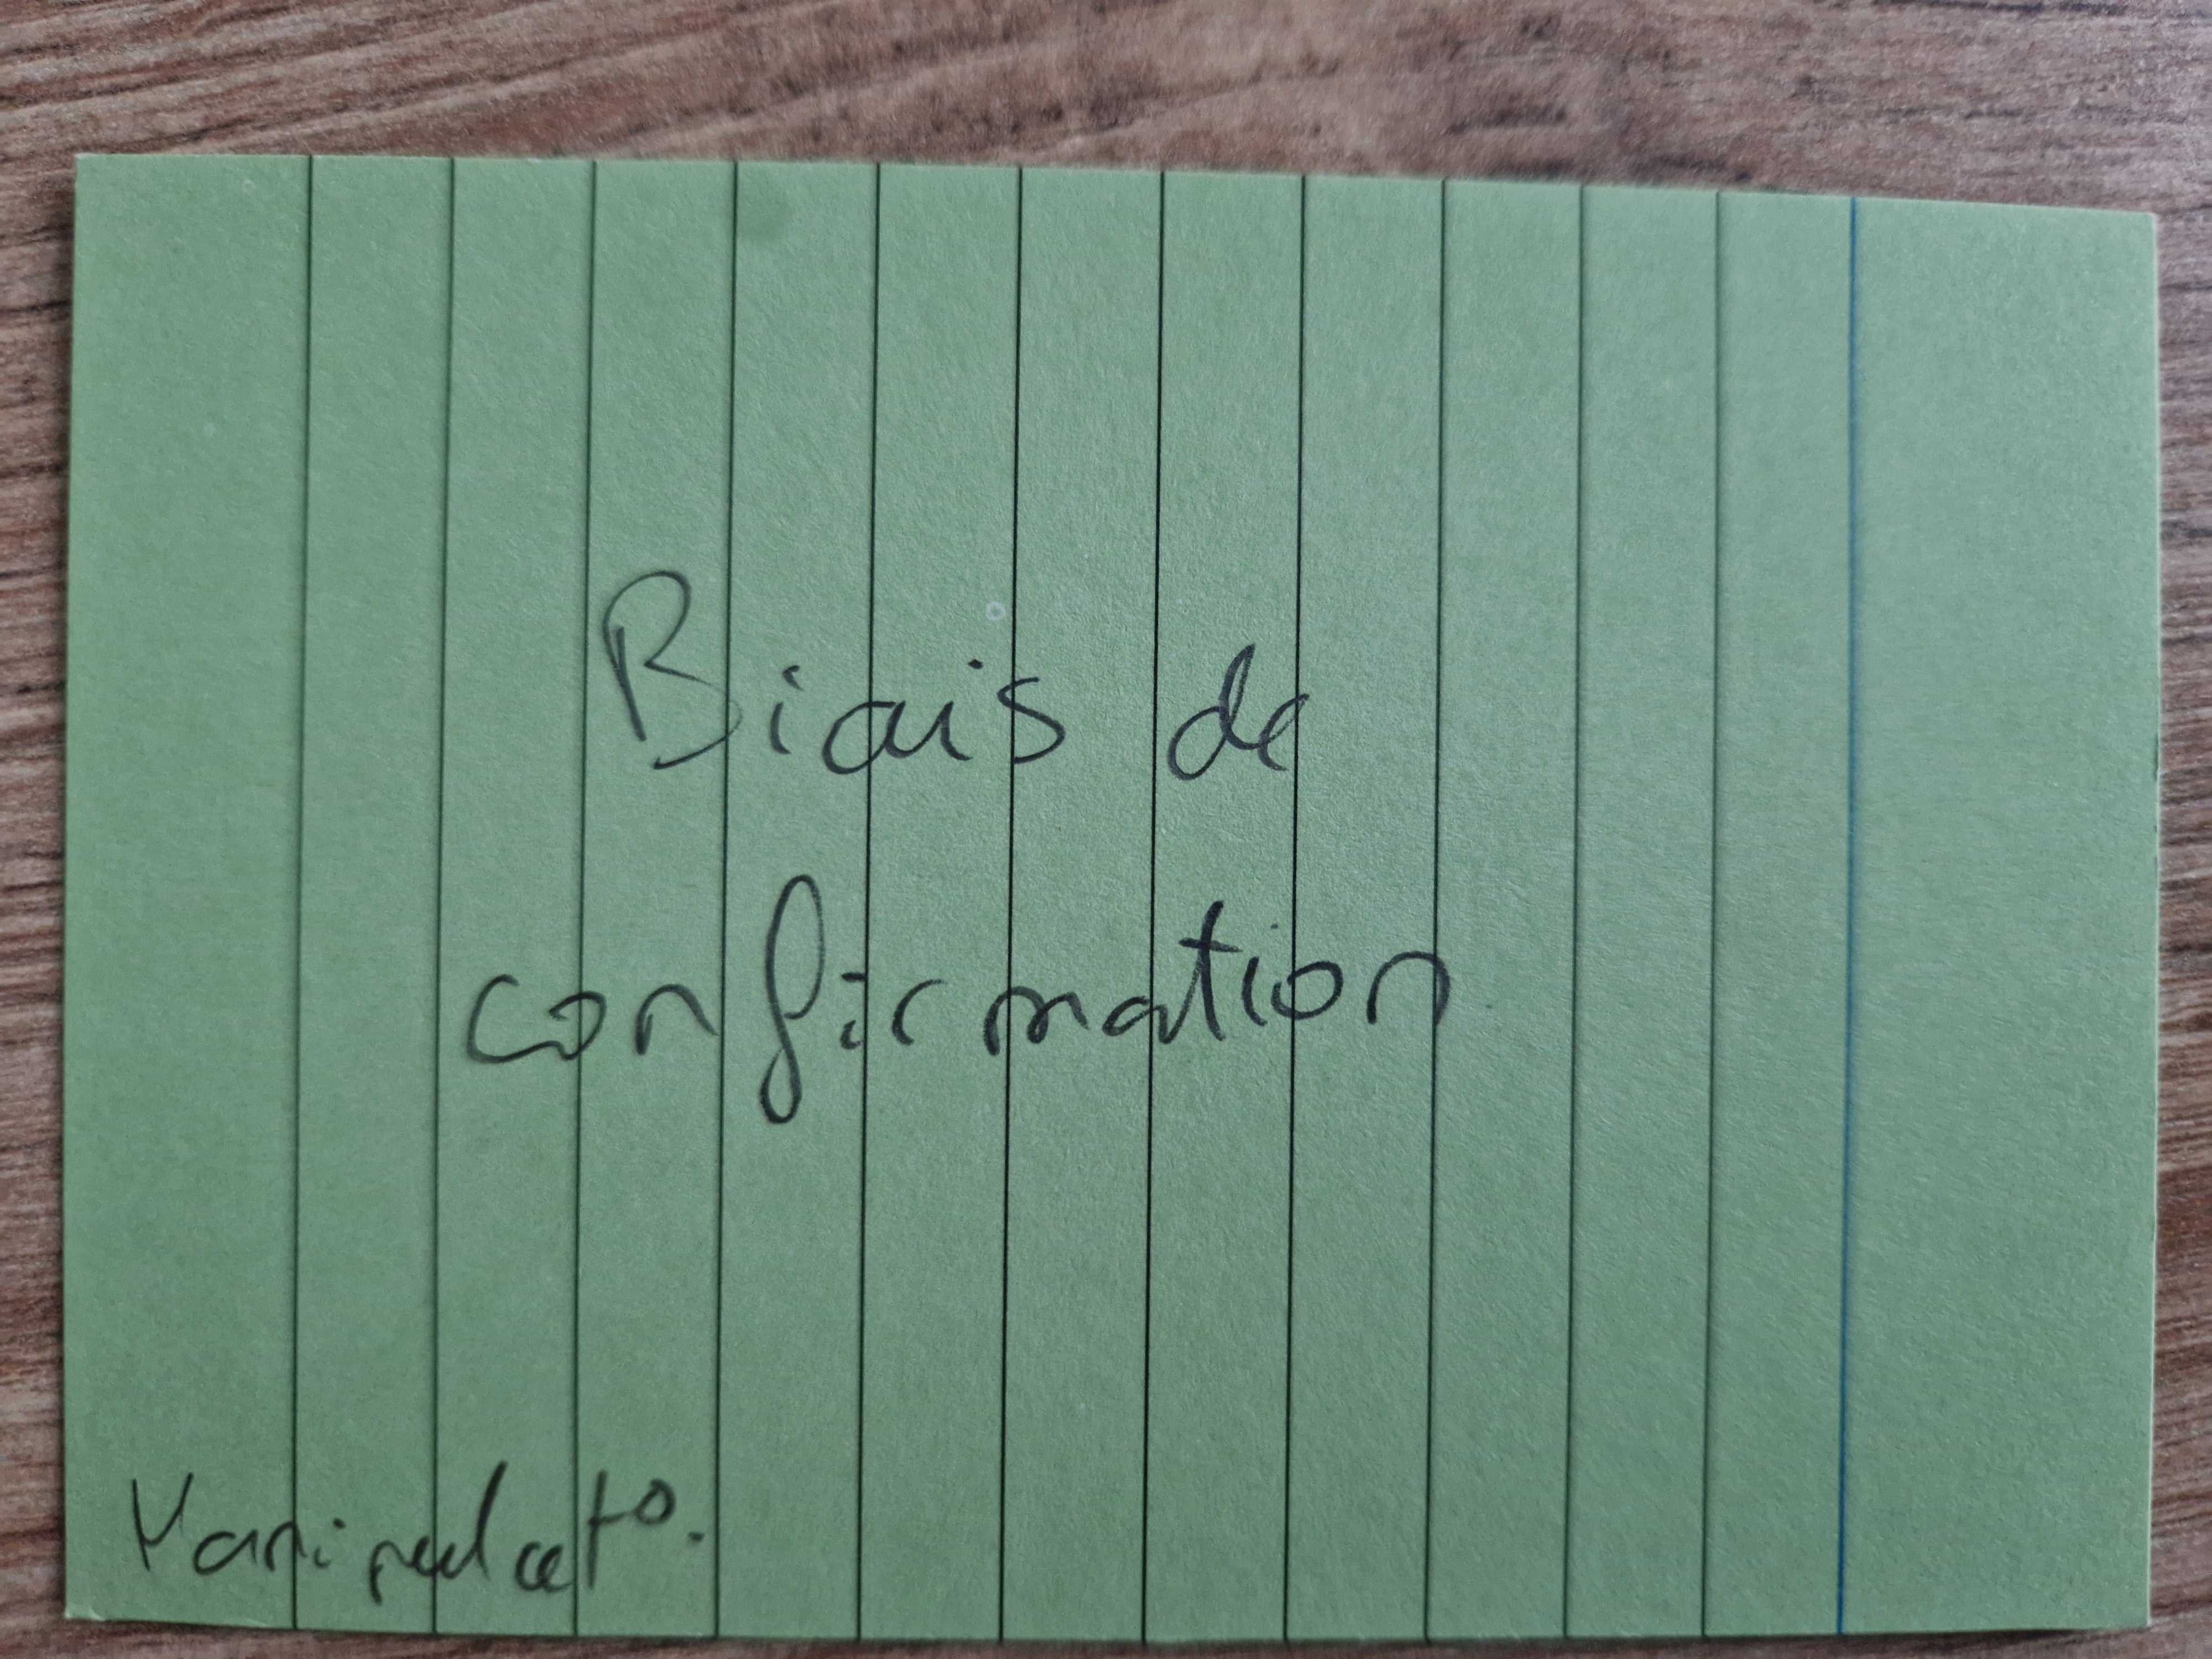 Biais de
confirmation
Manipulat°.